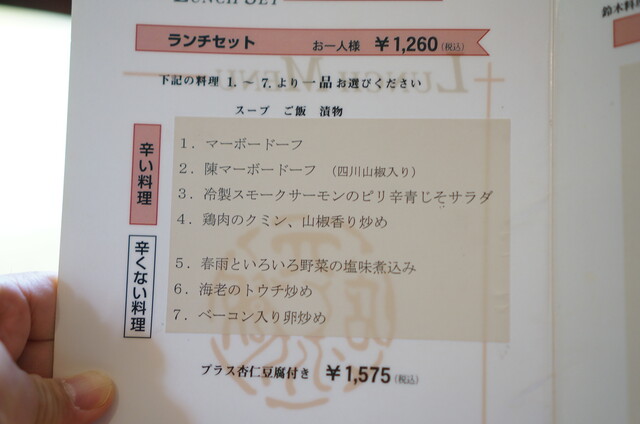 LUNCH SET
ランチセット お一人様 ￥1,260(税込)
下記の料理 1.～7.より一品お選びください
スープ ご飯 漬物
辛い料理
1．マーボードーフ
2．陳マーボードーフ （四川山椒入り）
3．冷製スモークサーモンのピリ辛青じそサラダ
4．鶏肉のクミン、山椒香り炒め
辛くない料理
5．春雨といろいろ野菜の塩味煮込み
6．海老のトウチ炒め
7．ベーコン入り卵炒め
プラス杏仁豆腐付き ￥1,575(税込)
鈴木料